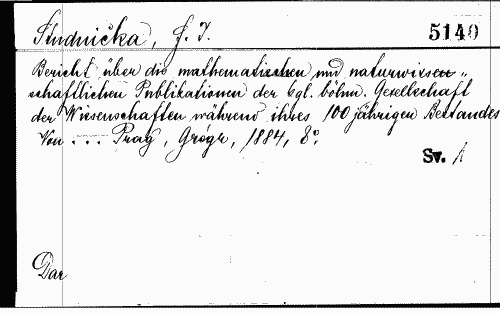 Studnička, F. J.
5140
Bericht über die mathematischen und naturwissen„
schaftlichen Publikationen der kgl. böhm. Gesellschaft
der Wissenschaften während ihres 100 jährigen Bestandes
Von ... Prag, Grégr, 1884, 8°.
Sv. A
Dar